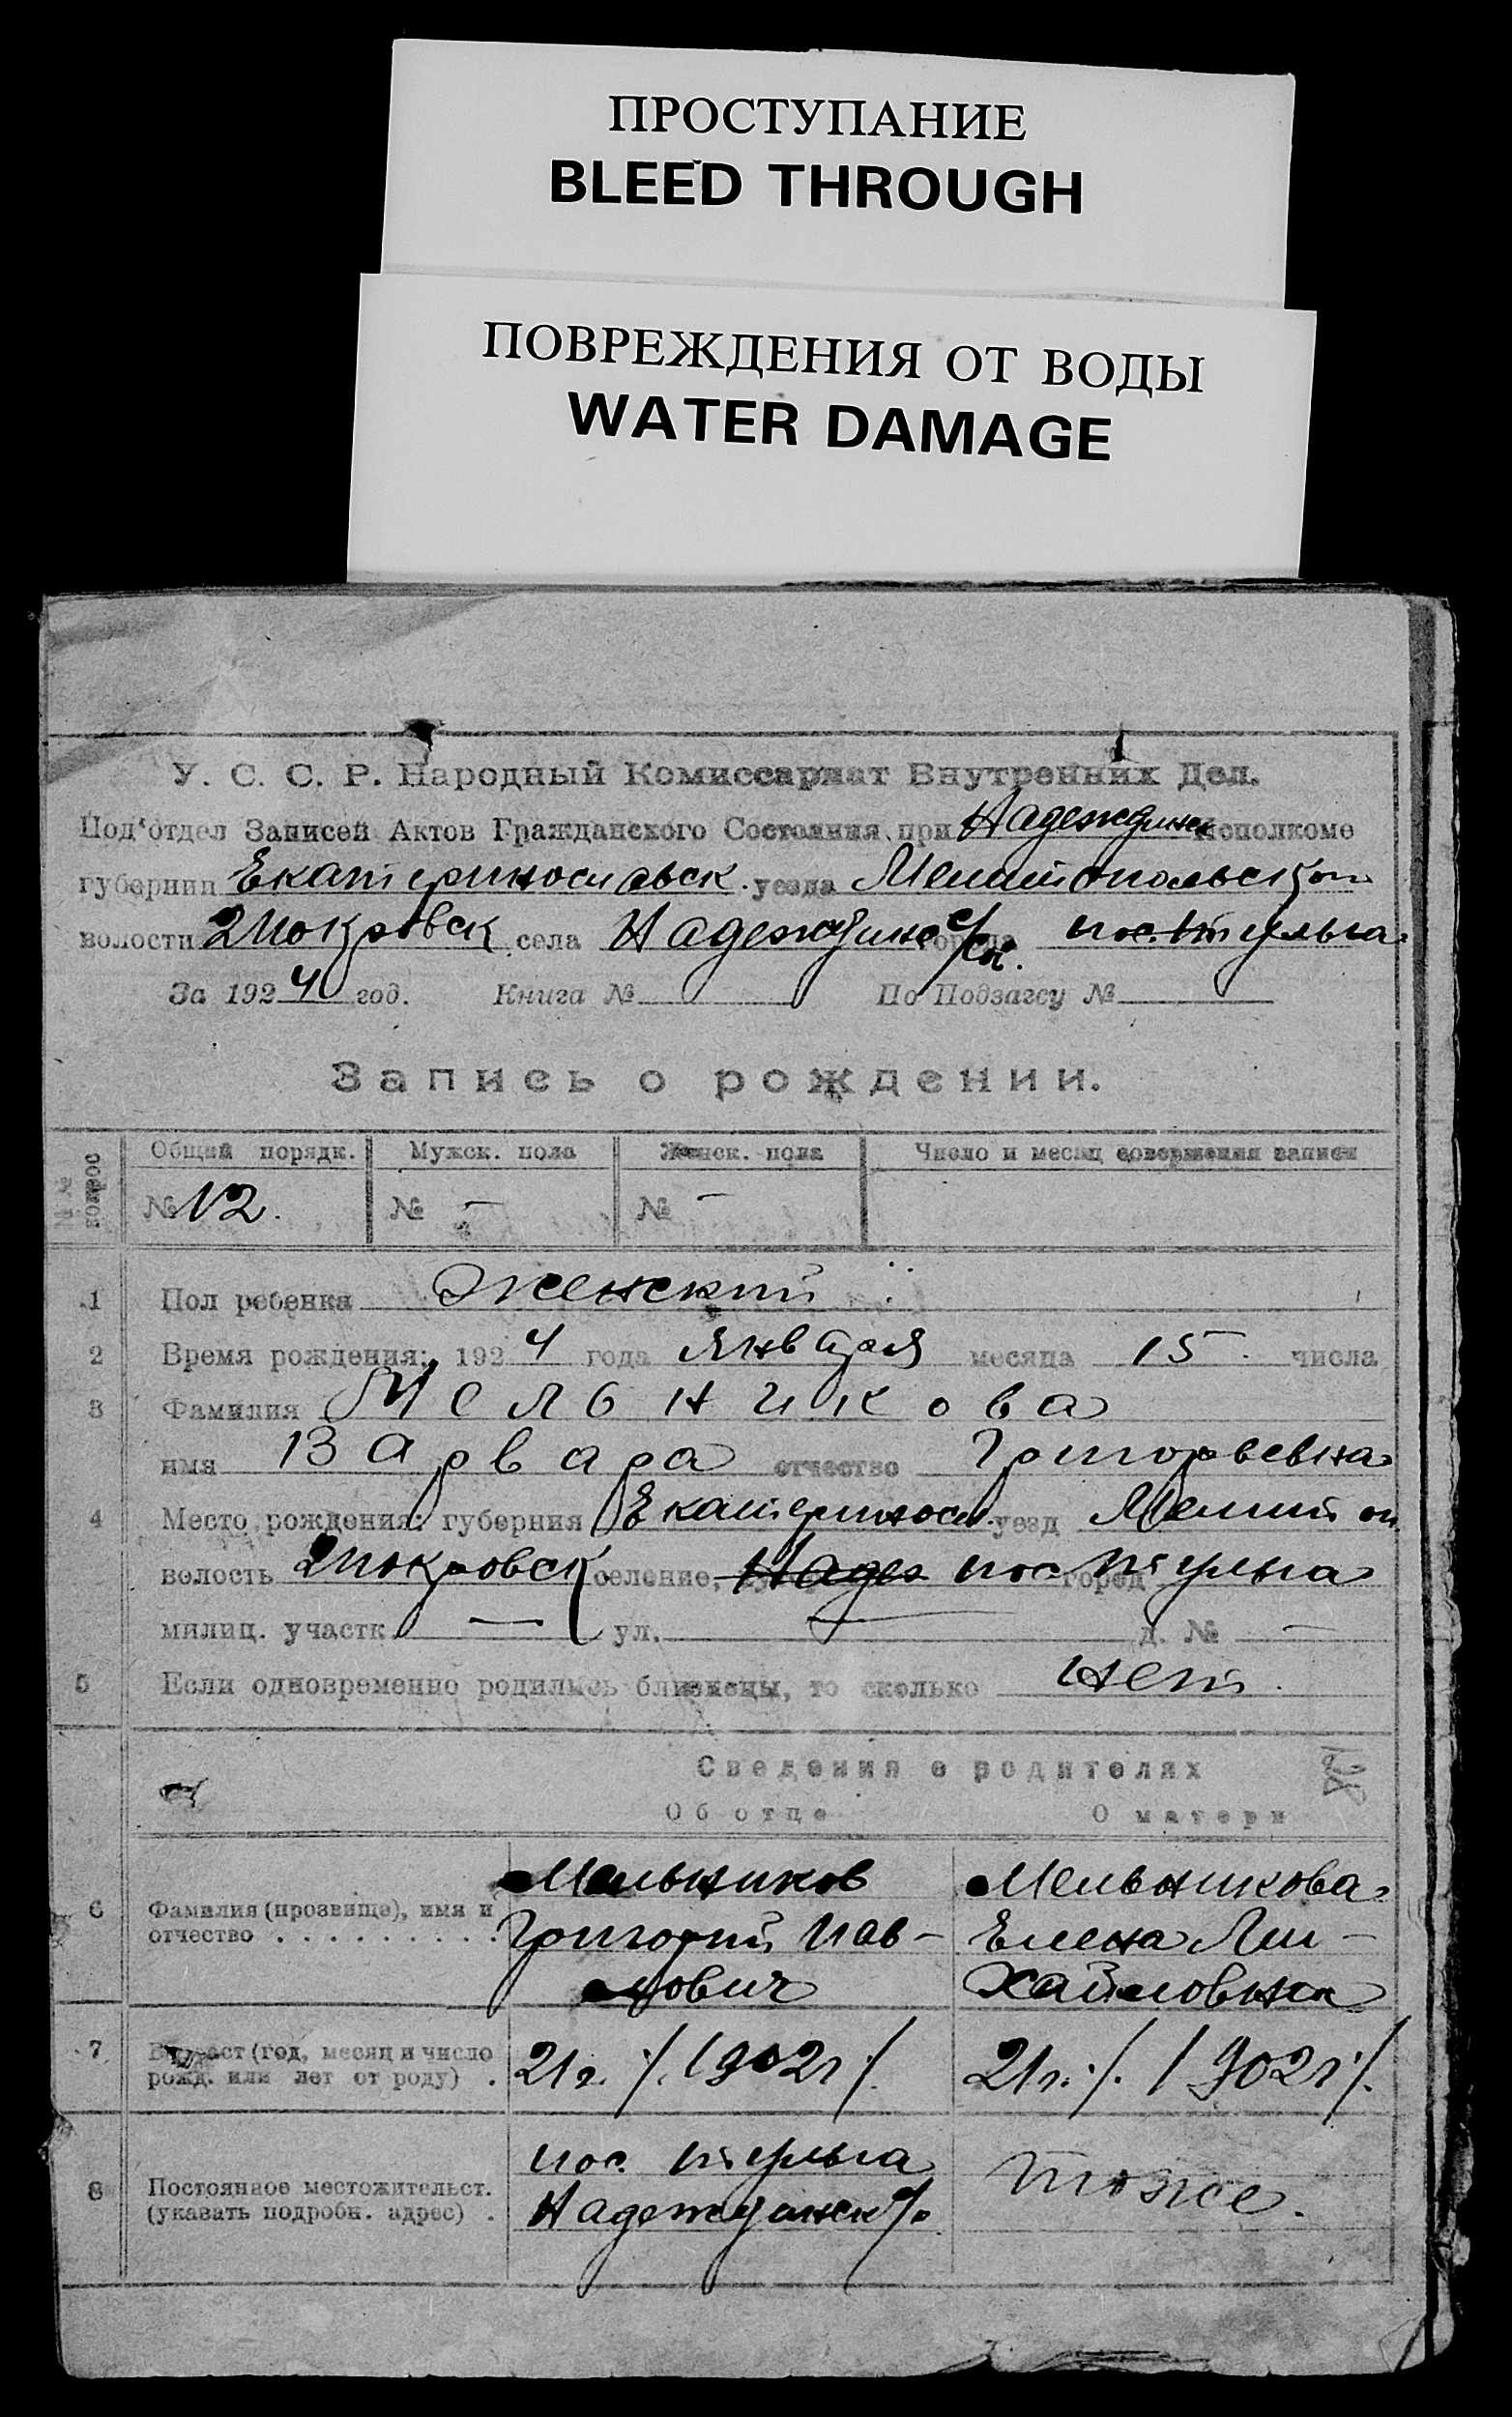 ПРОСТУПАНИЕ
BLEED THROUGH
ПОВРЕЖДЕНИЯ ОТ ВОДЫ
WATER DAMAGE
У. С. С. Р. Народный Комиссариат Внутренних Дел.
Под'отдел Записей Актов Гражданского Состояния при Надеждинск Исполкоме
губернии Екатериносл авск. уезда Мелитопольского
волости 2 Покровск села Надеждинск с/с. города
За 1924 год. Книга № По Подзагсу №
Запись о рождении.
№№ вопрос Общий порядк. Мужск. пола Женск. пола Число и месяц совершения записи
№ 12. № — № —
1 Пол ребенка Женский
2 Время рождения: 1924 года Января месяца 15 числа
3 Фамилия Мельникова
имя Варвара отчество Григорьевна
4 Место рождения: губерния Екатериносл. уезд Мелитоп.
волость 2 Покровск селение, город
милиц. участк — ул. — д. № —
5 Если одновременно родились близнецы, то сколько нет.
Сведения о родителях
Об отце О матери
6 Фамилия (прозвище), имя и отчество Мельников Мельникова
Григорий Пав- Елена Ми-
лович хайловна
7 Возраст (год, месяц и число рожд. или лет от роду) . 21 г. /. 1902 г /. 21 г. /. 1902 г /.
8 Постоянное местожительст. (указать подробн. адрес) . пос.
Надеждинск с/с тоже.